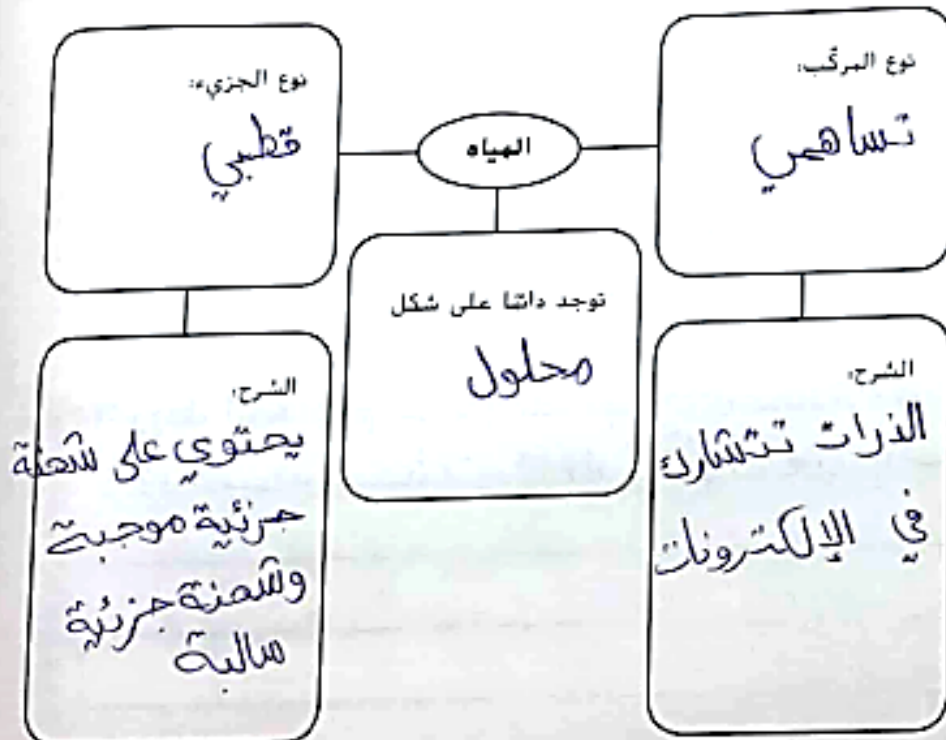 نوع المركّب:
تساهمي
المياه
نوع الجزيء:
قطبي
توجد دائمًا على شكل
محلول
الشرح:
الذرات تتشارك
في الإلكترونات
الشرح:
يحتوي على شحنة
جزئية موجبة
وشحنة جزئية
سالبة